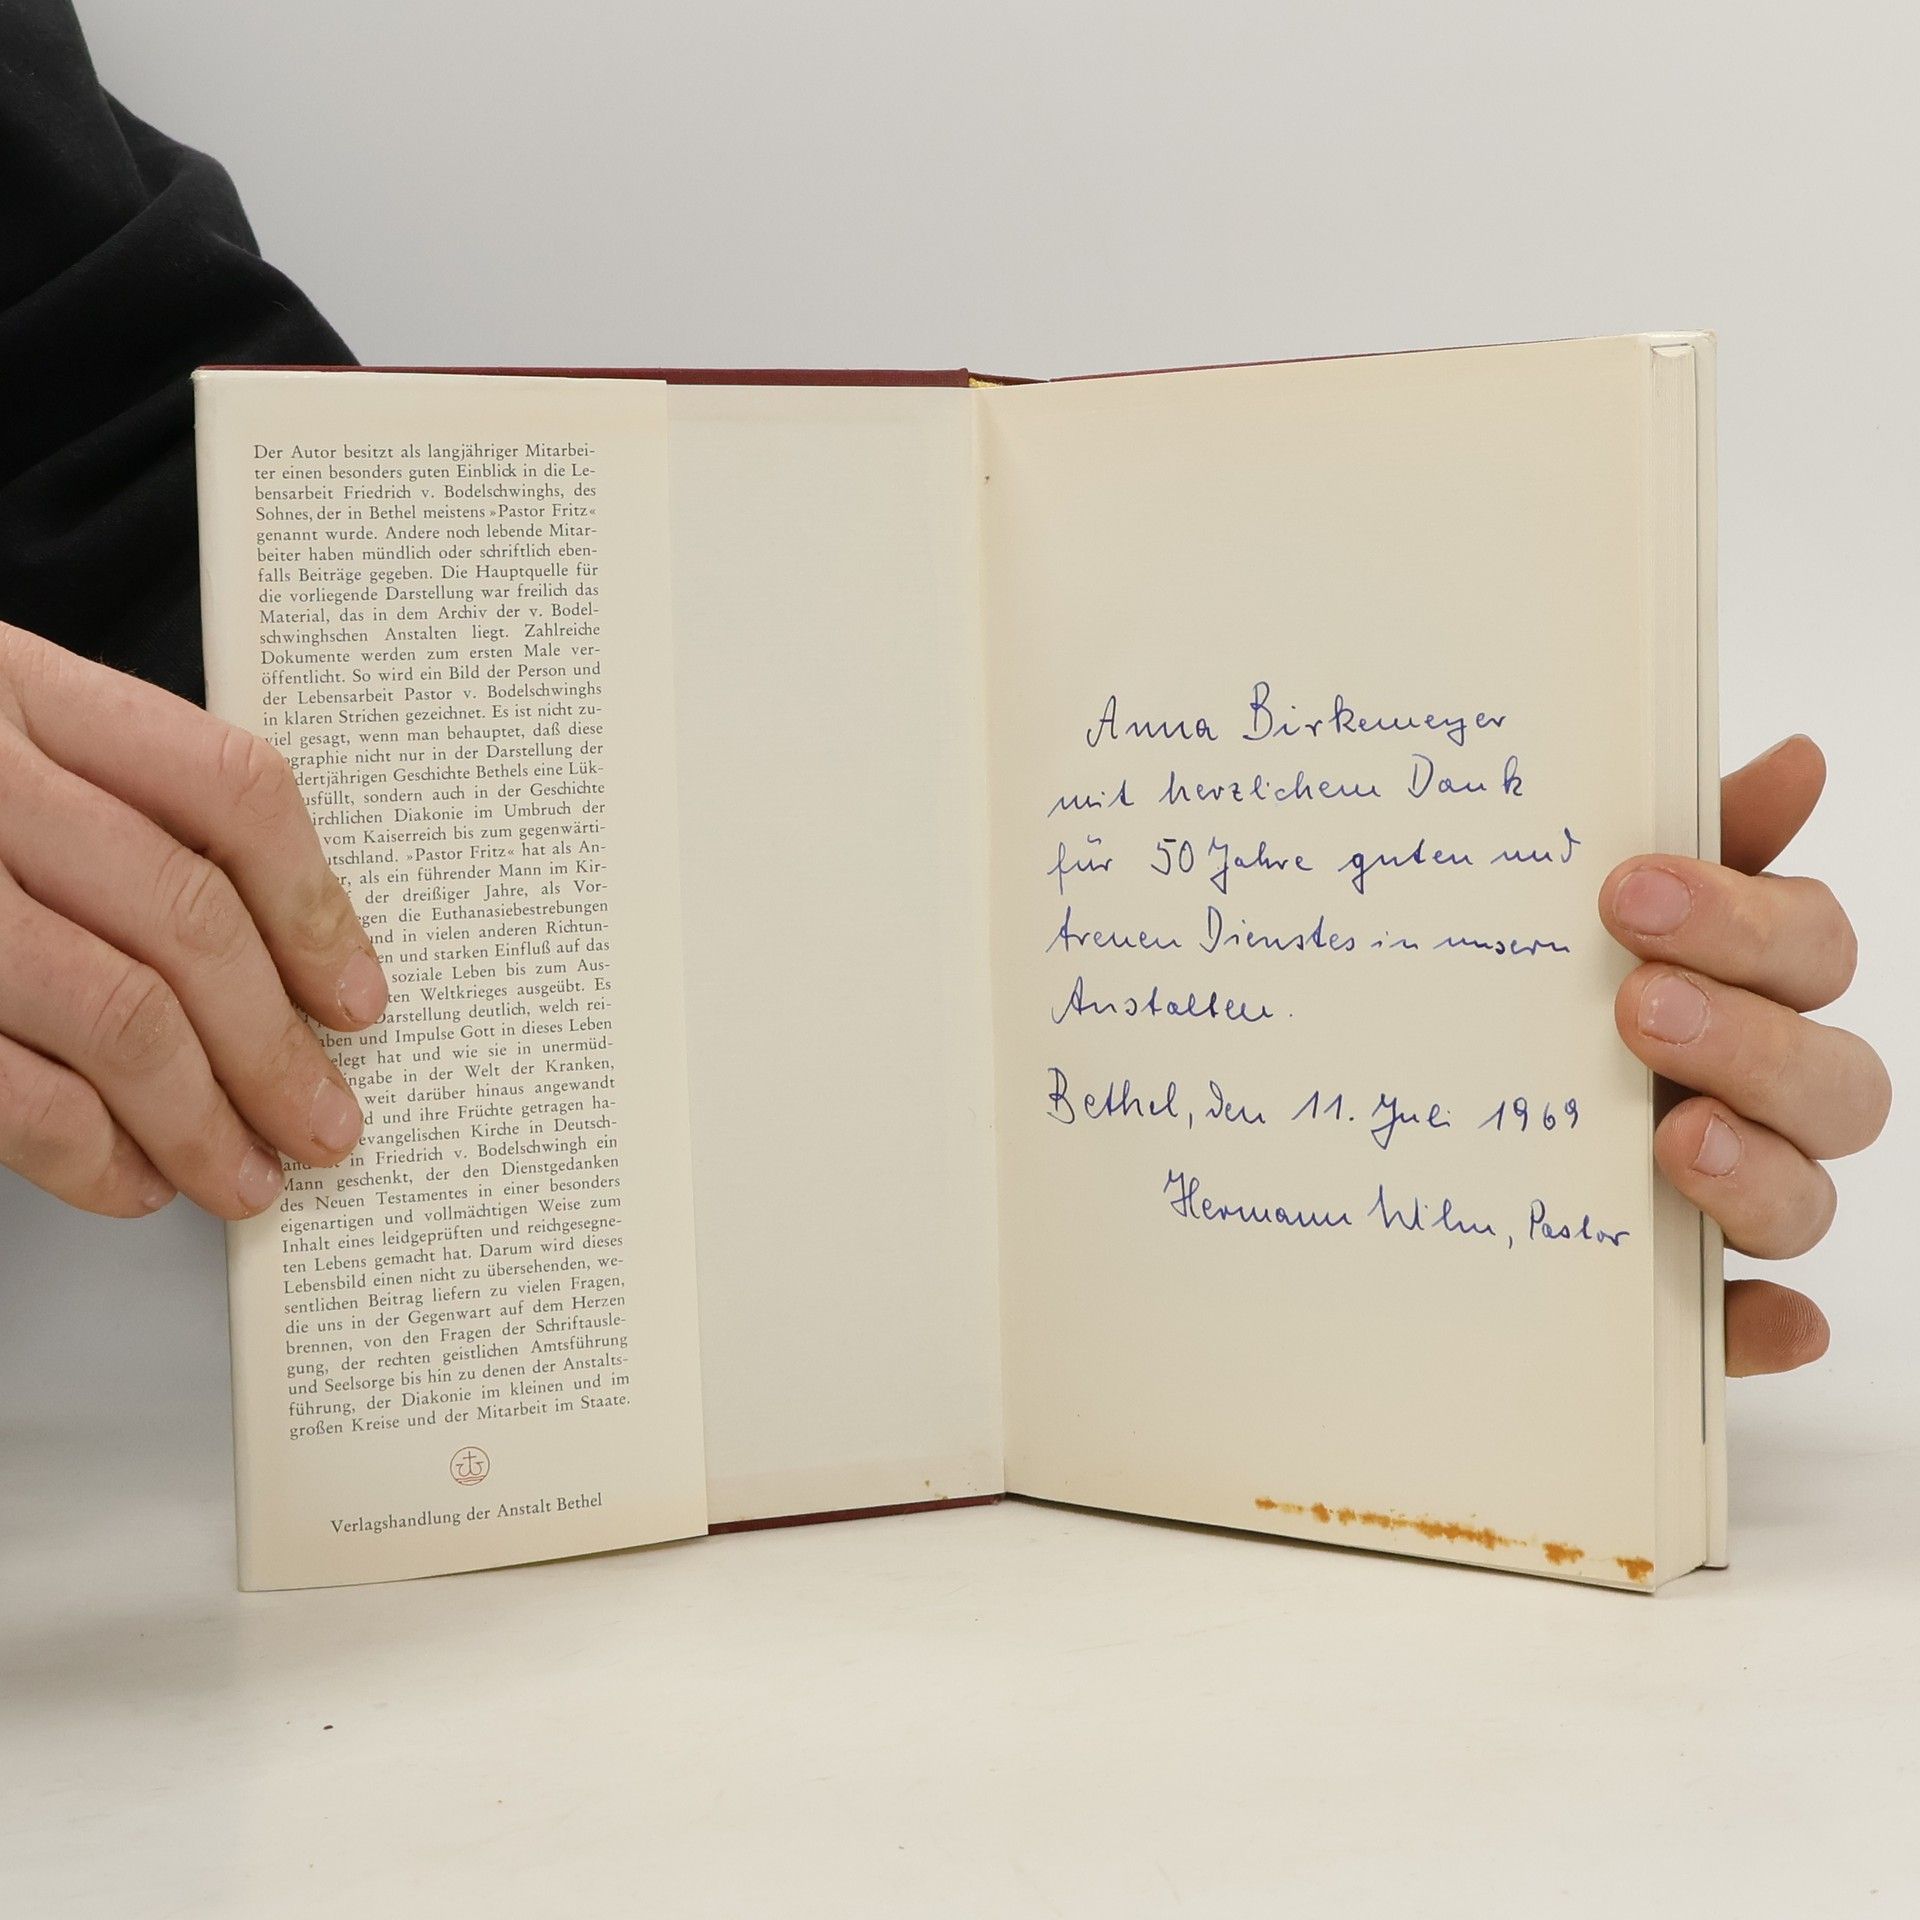 Der Autor besitzt als langjähriger Mitarbei-
ter einen besonders guten Einblick in die Le-
bensarbeit Friedrich v. Bodelschwinghs, des
Sohnes, der in Bethel meistens »Pastor Fritz«
genannt wurde. Andere noch lebende Mitar-
beiter haben mündlich oder schriftlich eben-
falls Beiträge gegeben. Die Hauptquelle für
die vorliegende Darstellung war freilich das
Material, das in dem Archiv der v. Bodel-
schwinghschen Anstalten liegt. Zahlreiche
Dokumente werden zum ersten Male ver-
öffentlicht. So wird ein Bild der Person und
der Lebensarbeit Pastor v. Bodelschwinghs
in klaren Strichen gezeichnet. Es ist nicht zu-
viel gesagt, wenn man behauptet, daß diese
ographie nicht nur in der Darstellung der
dertjährigen Geschichte Bethels eine Lük-
usfüllt, sondern auch in der Geschichte
irchlichen Diakonie im Umbruch der
vom Kaiserreich bis zum gegenwärti-
utschland. »Pastor Fritz« hat als An-
r, als ein führender Mann im Kir-
der dreißiger Jahre, als Vor-
egen die Euthanasiebestrebungen
und in vielen anderen Richtun-
en und starken Einfluß auf das
soziale Leben bis zum Aus-
ten Weltkrieges ausgeübt. Es
Darstellung deutlich, welch rei-
aben und Impulse Gott in dieses Leben
elegt hat und wie sie in unermüd-
ingabe in der Welt der Kranken,
weit darüber hinaus angewandt
d und ihre Früchte getragen ha-
evangelischen Kirche in Deutsch-
in Friedrich v. Bodelschwingh ein
Mann geschenkt, der den Dienstgedanken
des Neuen Testamentes in einer besonders
eigenartigen und vollmächtigen Weise zum
Inhalt eines leidgeprüften und reichgesegne-
ten Lebens gemacht hat. Darum wird dieses
Lebensbild einen nicht zu übersehenden, we-
sentlichen Beitrag liefern zu vielen Fragen,
die uns in der Gegenwart auf dem Herzen
brennen, von den Fragen der Schriftausle-
gung, der rechten geistlichen Amtsführung
und Seelsorge bis hin zu denen der Anstalts-
führung, der Diakonie im kleinen und im
großen Kreise und der Mitarbeit im Staate.
Verlagshandlung der Anstalt Bethel
Anna Birkemeyer
mit herzlichem Dank
für 50 Jahre guten und
treuen Dienstes in unsern
Anstalten.
Bethel, den 11. Juli 1969
Hermann Wilm, Pastor